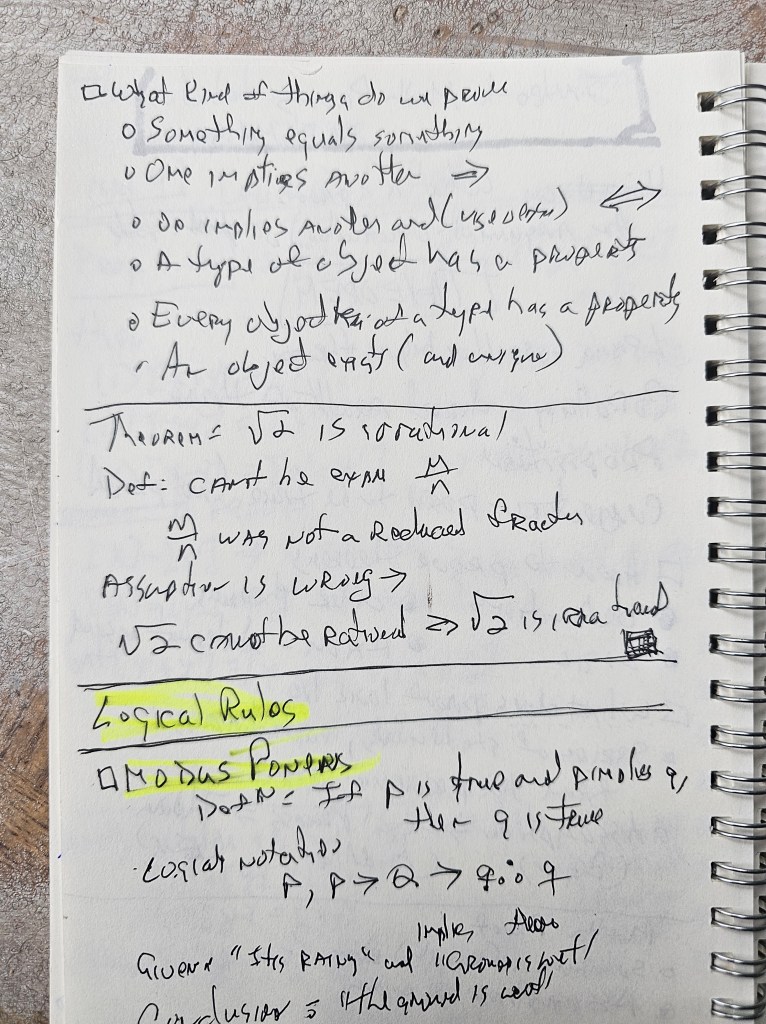 □ What kind of things do we prove
o Something equals something
o One implies another ⇒
o implies another and (vise versa) ⇔
o A type of object has a property
o Every object of a type has a property
- An object exists (and unique)
Theorem = √2 is irrational
Def: can't be M/n
M/n was not a Reduced fraction
Assumption is wrong →
√2 cannot be rational ⇒ √2 is irrational
Logical Rules
□ Modus Ponens
Defn = If p is true and p implies q,
then q is true
· Logical notation
P, P → Q → q ∴ q
implies
Given "It is Rainy" and "Ground is wet"
Conclusion = "the ground is wet"